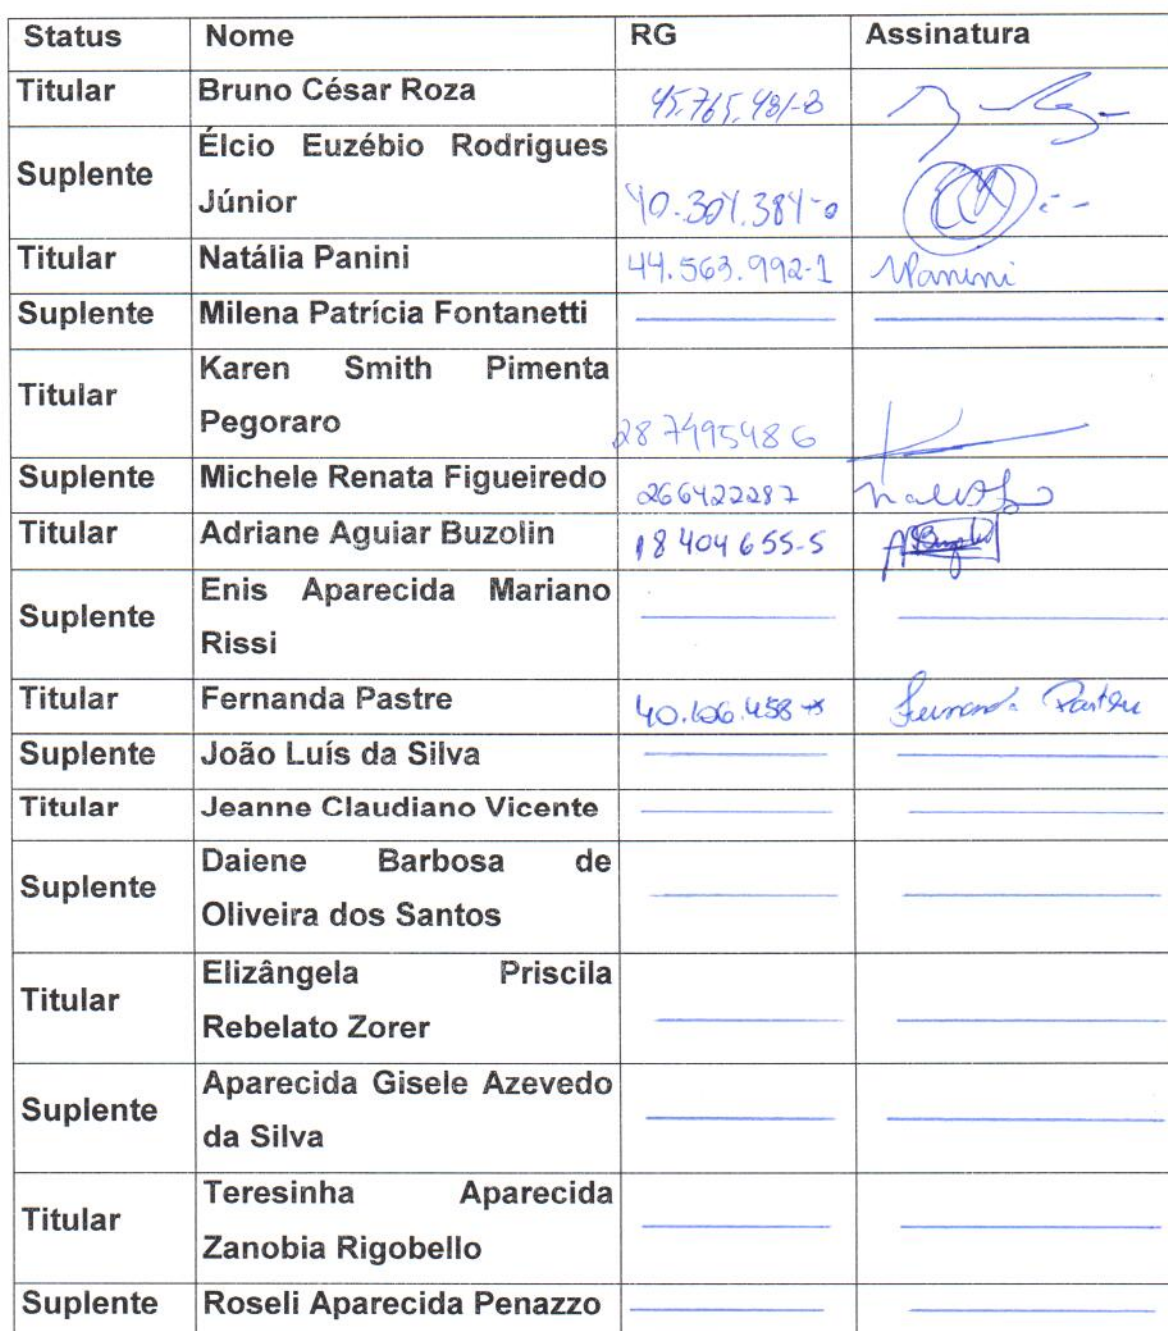 Status Nome RG Assinatura
Titular Bruno César Roza 45.765.481-8
Élcio Euzébio Rodrigues
Suplente
Júnior 40.304.384-0
Titular Natália Panini 44.563.992-1 NPanini
Suplente Milena Patrícia Fontanetti
Karen Smith Pimenta
Titular
Pegoraro 287495486
Suplente Michele Renata Figueiredo 266422287
Titular Adriane Aguiar Buzolin 18404655-5 ABuzolin
Enis Aparecida Mariano
Suplente
Rissi
Titular Fernanda Pastre Fernanda Pastre
Suplente João Luís da Silva
Titular Jeanne Claudiano Vicente
Daiene Barbosa de
Suplente
Oliveira dos Santos
Elizângela Priscila
Titular
Rebelato Zorer
Aparecida Gisele Azevedo
Suplente
da Silva
Teresinha Aparecida
Titular
Zanobia Rigobello
Suplente Roseli Aparecida Penazzo